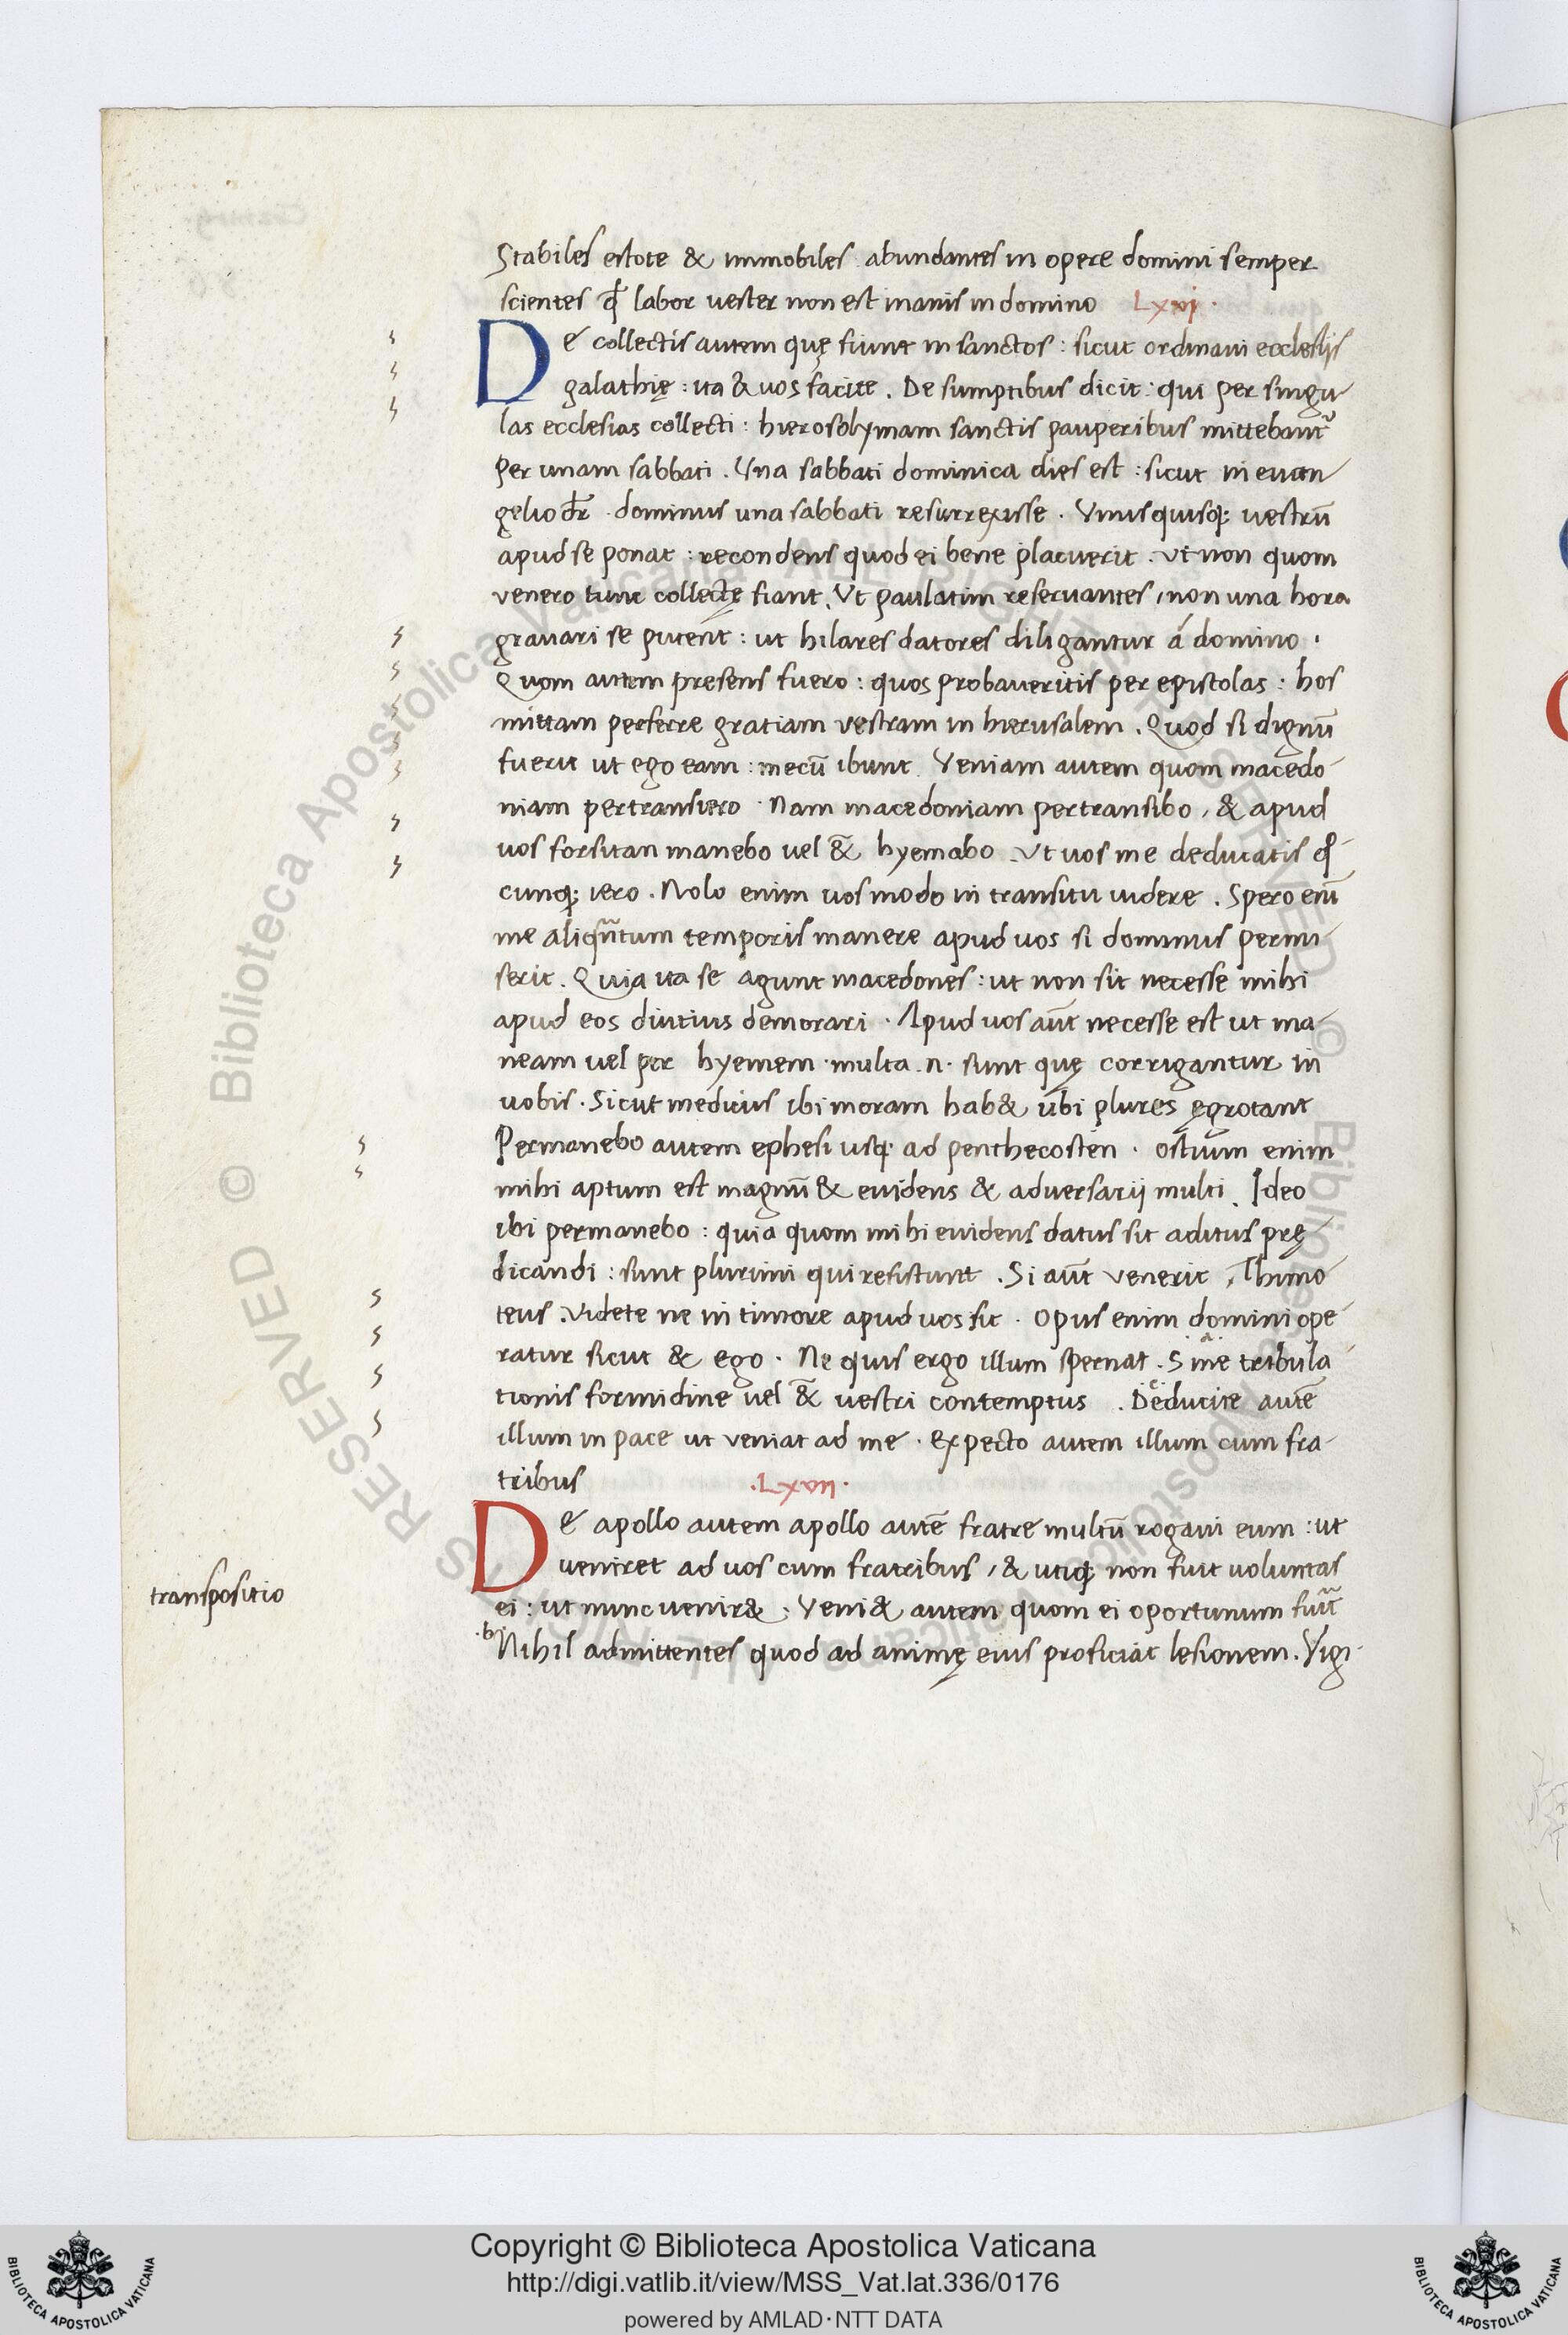 Stabiles estote & immobiles abundantes in opere domini semper
scientes qđ labor uester non est inanis in domino Lxxi ·
De collectis autem quę fiunt in sanctos : sicut ordinaui ecclesijs
galathię : ita & uos facite . De sumptibus dicit : qui per singu-
las ecclesias collecti : hierosolymam sanctis pauperibus mittebant᷑
Per unam sabbati . Vna sabbati dominica dies est : sicut in euan-
gelio dr̄ · dominus una sabbati resurrexisse . Vnusquisq; uestrū
apud se ponat : recondens quod ei bene placuerit . vt non quom
venero tunc collectę fiant . Vt paulatim reseruantes / non una hora
grauari se putent : ut hilares datores diligantur á domino .
Quom autem presens fuero : quos probaueritis per epistolas : hos
mittam perferre gratiam vestram in hierusalem . Quod si dignū
fuerit ut ego eam : mecū ibunt Veniam autem quom macedo-
niam pertransiero · Nam macedoniam pertransibo , & apud
uos forsitan manebo uel &̄ hyemabo . vt uos me deducatis q̄-
cunq; iero . Nolo enim uos modo in transitu uidere . Spero enī
me aliqñtum temporis manere apud uos si dominus permi-
serit . Quia ita se agunt macedones : ut non sit necesse mihi
apud eos diutius demorari · Apud uos aūt necesse est ut ma-
neam uel per hyemem · multa .n. sunt quę corrigantur in
uobis . Sicut medicus ibi moram hab& ubi plures ęgrotant
Permanebo autem ephesi usq; ad penthecosten · ostium enim
mihi aptum est magnū & euidens & aduersarij multi . Ideo
ibi permanebo : quia quom mihi euidens datus sit aditus prę-
dicandi : sunt plurimi qui resistunt . Si aūt venerit , Thimo-
teus . videte ne in timore apud uos sit · opus enim domini ope-
ratur sicut & ego · Ne quis ergo illum spernat . Sine tribula-
tionis formidine uel &̄ uestri contemptus . Deducite autē
illum in pace ut veniat ad me · expecto autem illum cum fra-
tribus .Lxvii·
De apollo autem apollo autē fratre multū rogaui eum : ut
veniret ad uos cum fratribus , & utiq; non fuit uoluntas
transpositio
ei : ut nunc uenir& . Veni& autem quom ei oportunum fuīt
.b. Nihil admittentes quod ad animę eius proficiat lesionem . Vigi-
Copyright © Biblioteca Apostolica Vaticana
http://digi.vatlib.it/view/MSS_Vat.lat.336/0176
powered by AMLAD·NTT DATA
BIBLIOTECA APOSTOLICA VATICANA
BIBLIOTECA APOSTOLICA VATICANA